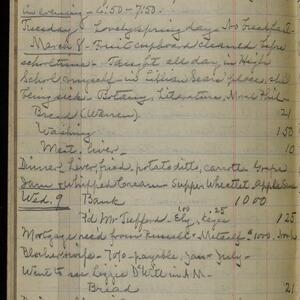 in evening - 6:50 - 7:50.
Tuesday Lovely spring day - No breakfast -
March 8 - Fruit cupboard cleaned before
school time - Taught all day, in High
School myself - in Lillian Sears place, she
being sick - Botany, Literature, Moral Phil -
Bread (Warren) 21
Washing 1 50
Meat, liver 10
Dinner - Liver, fried potato ditto, carrots - Grape
Jam - Whipped Cream - Supper Wheatlet, Apple Sauce
Wed. 9 Bank 10 00
P'd Mr. 1 00 Keyes 25 1 25
Mortgage rec'd from Russell - Metcalf $1000,
7% - payable Jan - July -
Went to see Lizzie in A.M -
Bread 21